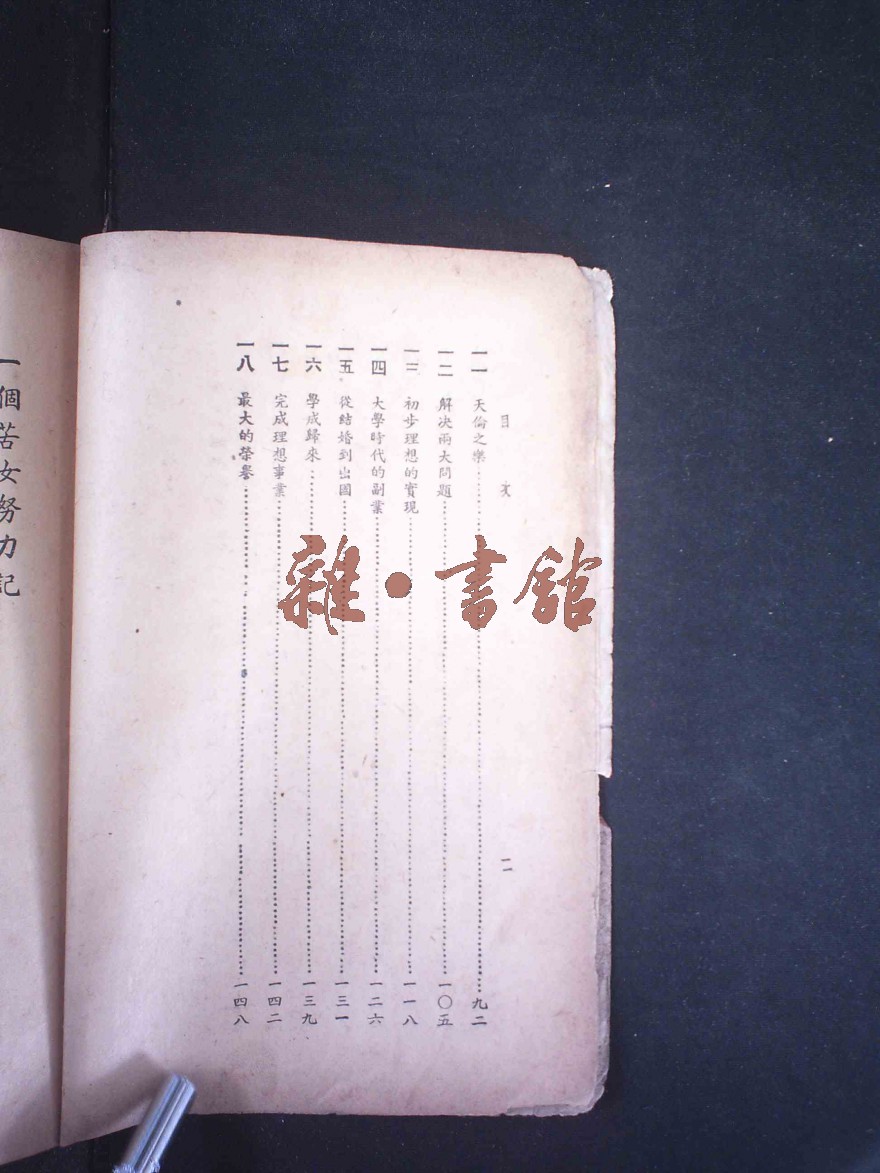 目次
二
一一 天倫之樂 九二
一二 解決兩大問題 一〇五
一三 初步理想的實現 一一八
一四 大學時代的副業 一二六
一五 從結婚到出國 一三一
一六 學成歸來 一三九
一七 完成理想事業 一四二
一八 最大的榮譽 一四八
一個苦女努力記
雜·書館